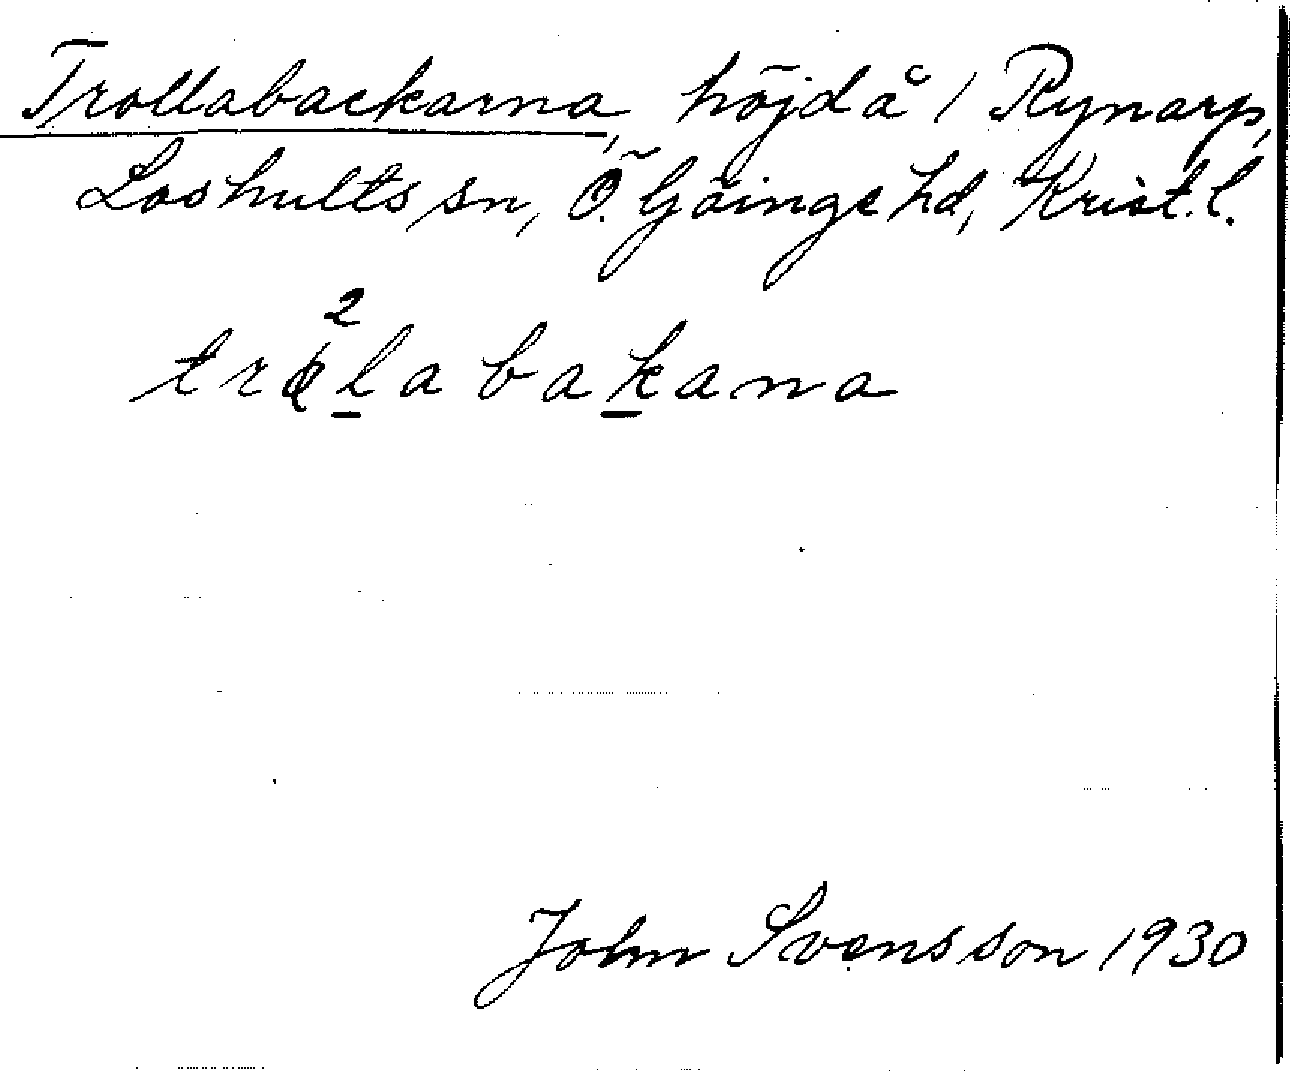 Trollabackarna, höjd å / Rynarp,
Loshults sn, Ö. Göinge hd, Krist. l.
2
trølabakana
John Svensson 1930